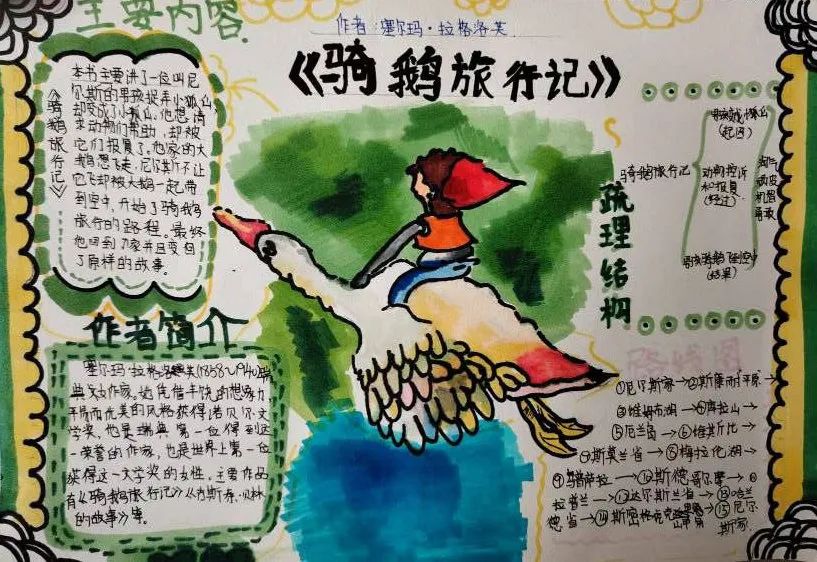 主要内容
作者:塞尔玛·拉格洛芙
《骑鹅旅行记》
《骑鹅旅行记》
本书主要讲了一位叫尼
尔斯的男孩捉弄小狐仙,
却变成了小狐仙,他想请
求动物们帮助,却被
它们报复了,他家的大
鹅想飞走,尼尔斯不让
它飞却被大鹅一起带
到空中,开始了骑鹅
旅行的路程。最终
他回到了家并且变回
了原样的故事。
作者简介
塞尔玛·拉格洛芙(1858~1940)瑞
典女作家。她凭借丰饶的想象力
平易而优美的风格获得诺贝尔文
学奖,也是瑞典第一位得到这一
荣誉的作家,也是世界上第一位
获得这一文学奖的女性。主要作品
有《骑鹅旅行记》
的故事》等。
疏理结构
骑鹅旅行记
(起因)
动物控诉
和报复
(经过)
(结果)
淘气
顽皮
机智
勇敢
①尼尔斯家→②斯康耐平原→
③维姆布湖→④库拉山→
⑤厄兰岛→⑥维斯比→
⑦斯莫兰省→⑧梅拉伦湖→
⑨乌普萨拉→⑩斯德哥摩→⑪
拉普兰→⑫达尔斯兰省→⑬哈兰
德省→⑭斯密格霍克→⑮尼尔
斯家